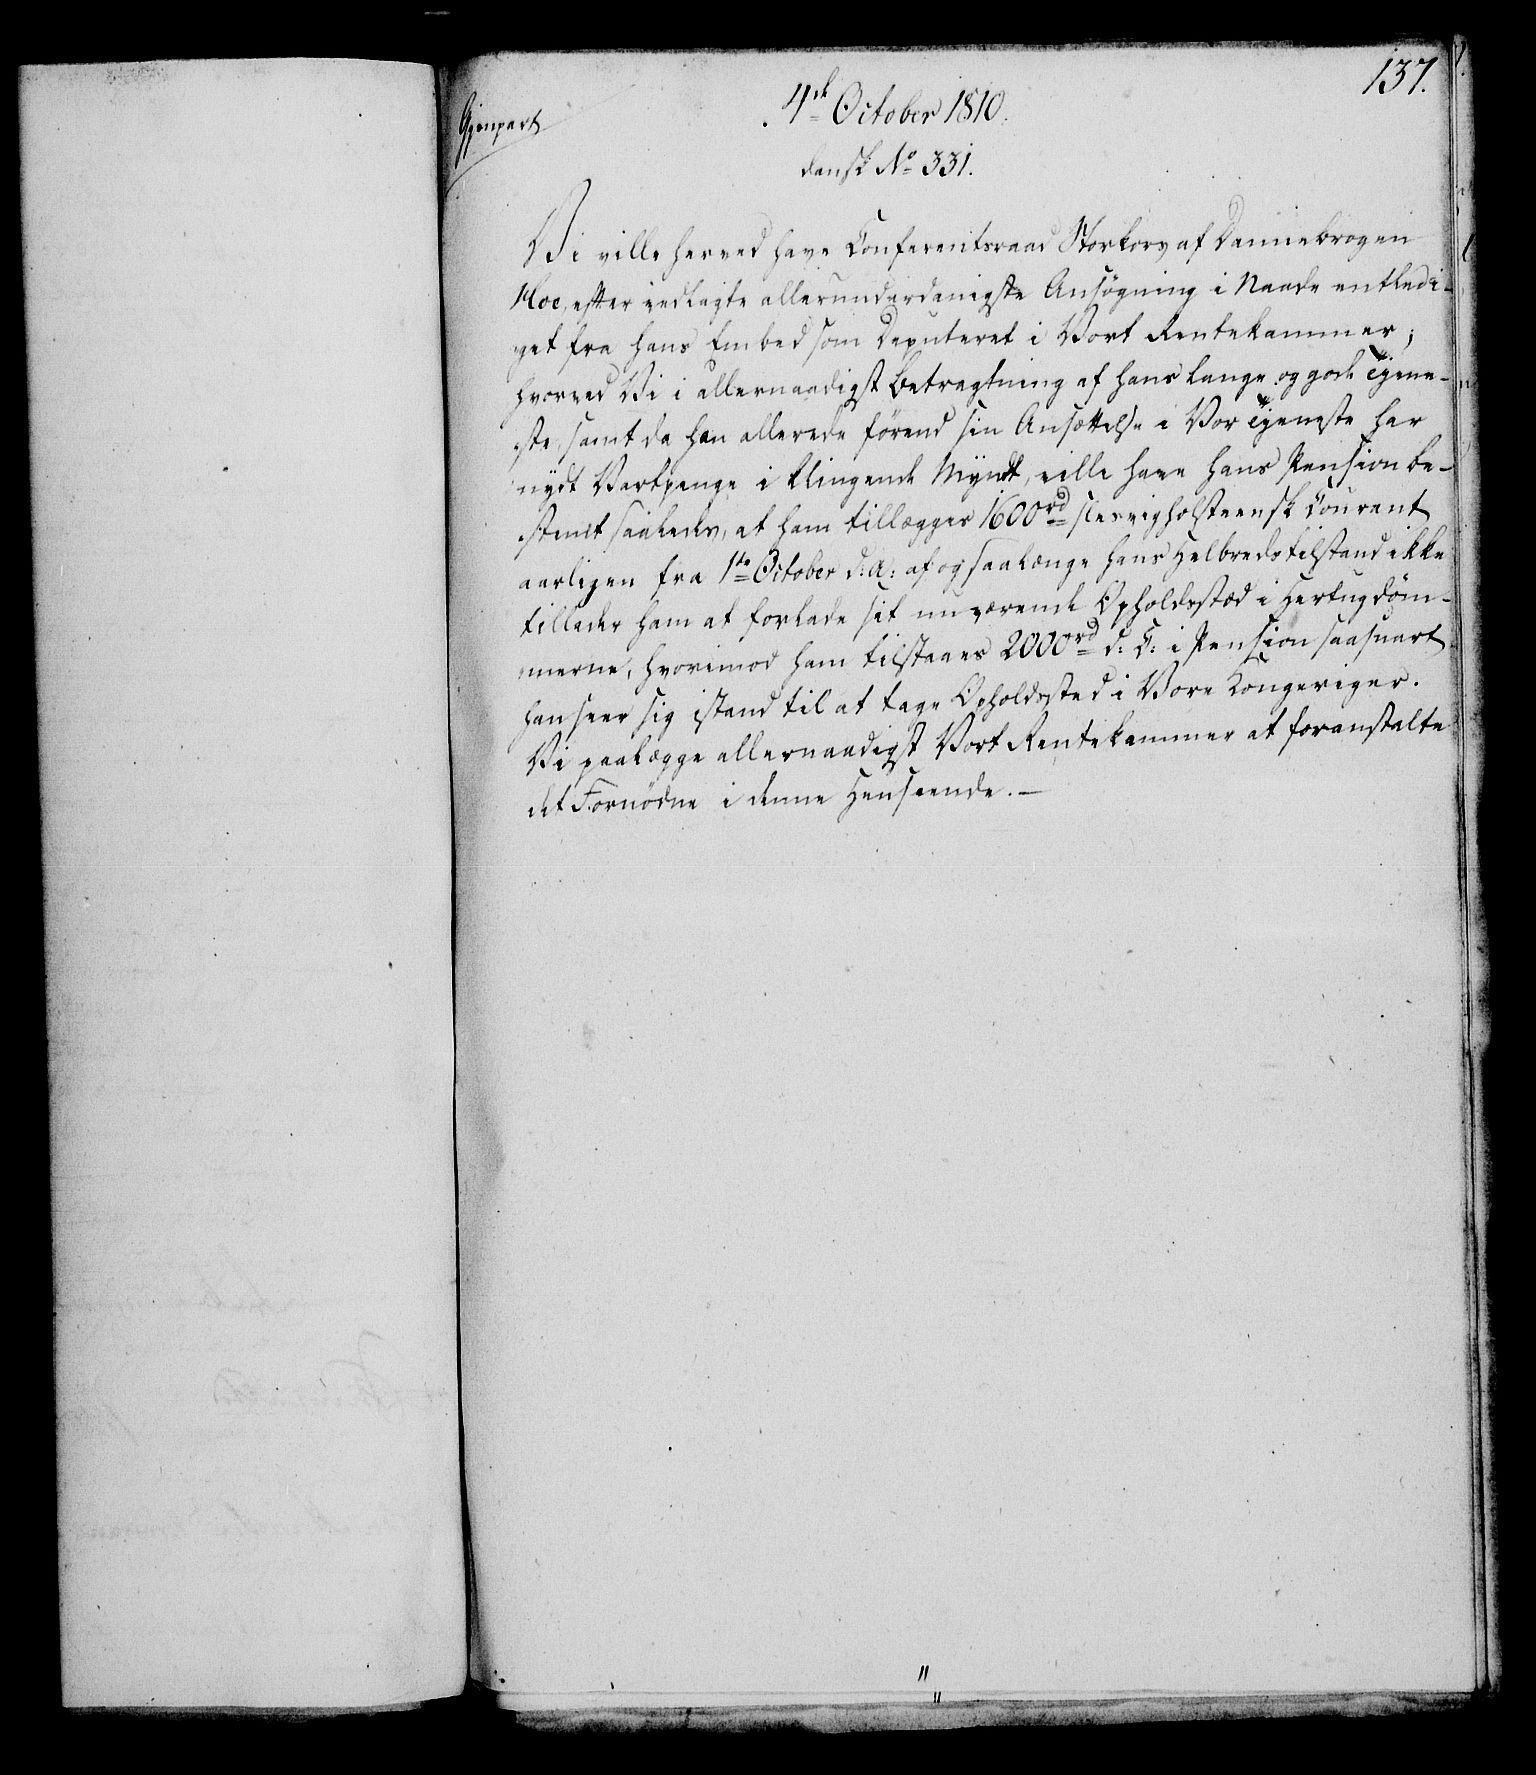 137.
Gjenpart
4de October 1810.
dansk No 331.
Vi ville herved have Conferentsraad Storkors af Dannebrogen
Moe, efter indlagte allerunderdanigste Ansøgning i Naade entledi-
get fra hans Embed som Deputeret i Vort Rentekammer;
hvorved Vi i allernaadigst Betragtning af hans lange og gode Tjene-
ste, samt da han allerede førend sin Ansættelse i Vor Tjeneste har
nydt Vartpenge i klingende Myndt, ville have hans Pension be-
stemt saaledes, at ham tillægges 1600rd slesvigholsteensk Courant
aarligen fra 1te October d: A: af og saalænge hans Helbredstilstand ikke
tillader ham at forlade sit nuværende Opholdsstæd i Hertugdøm-
merne, hvorimod ham tilstaaes 2000rd d: C: i Pension saasnart
han seer sig istand til at tage Opholdssted i Vore Kongeriger.
Vi paalægge allernaadigst Vort Rentekammer at foranstalte
det Fornødne i denne Henseende. —